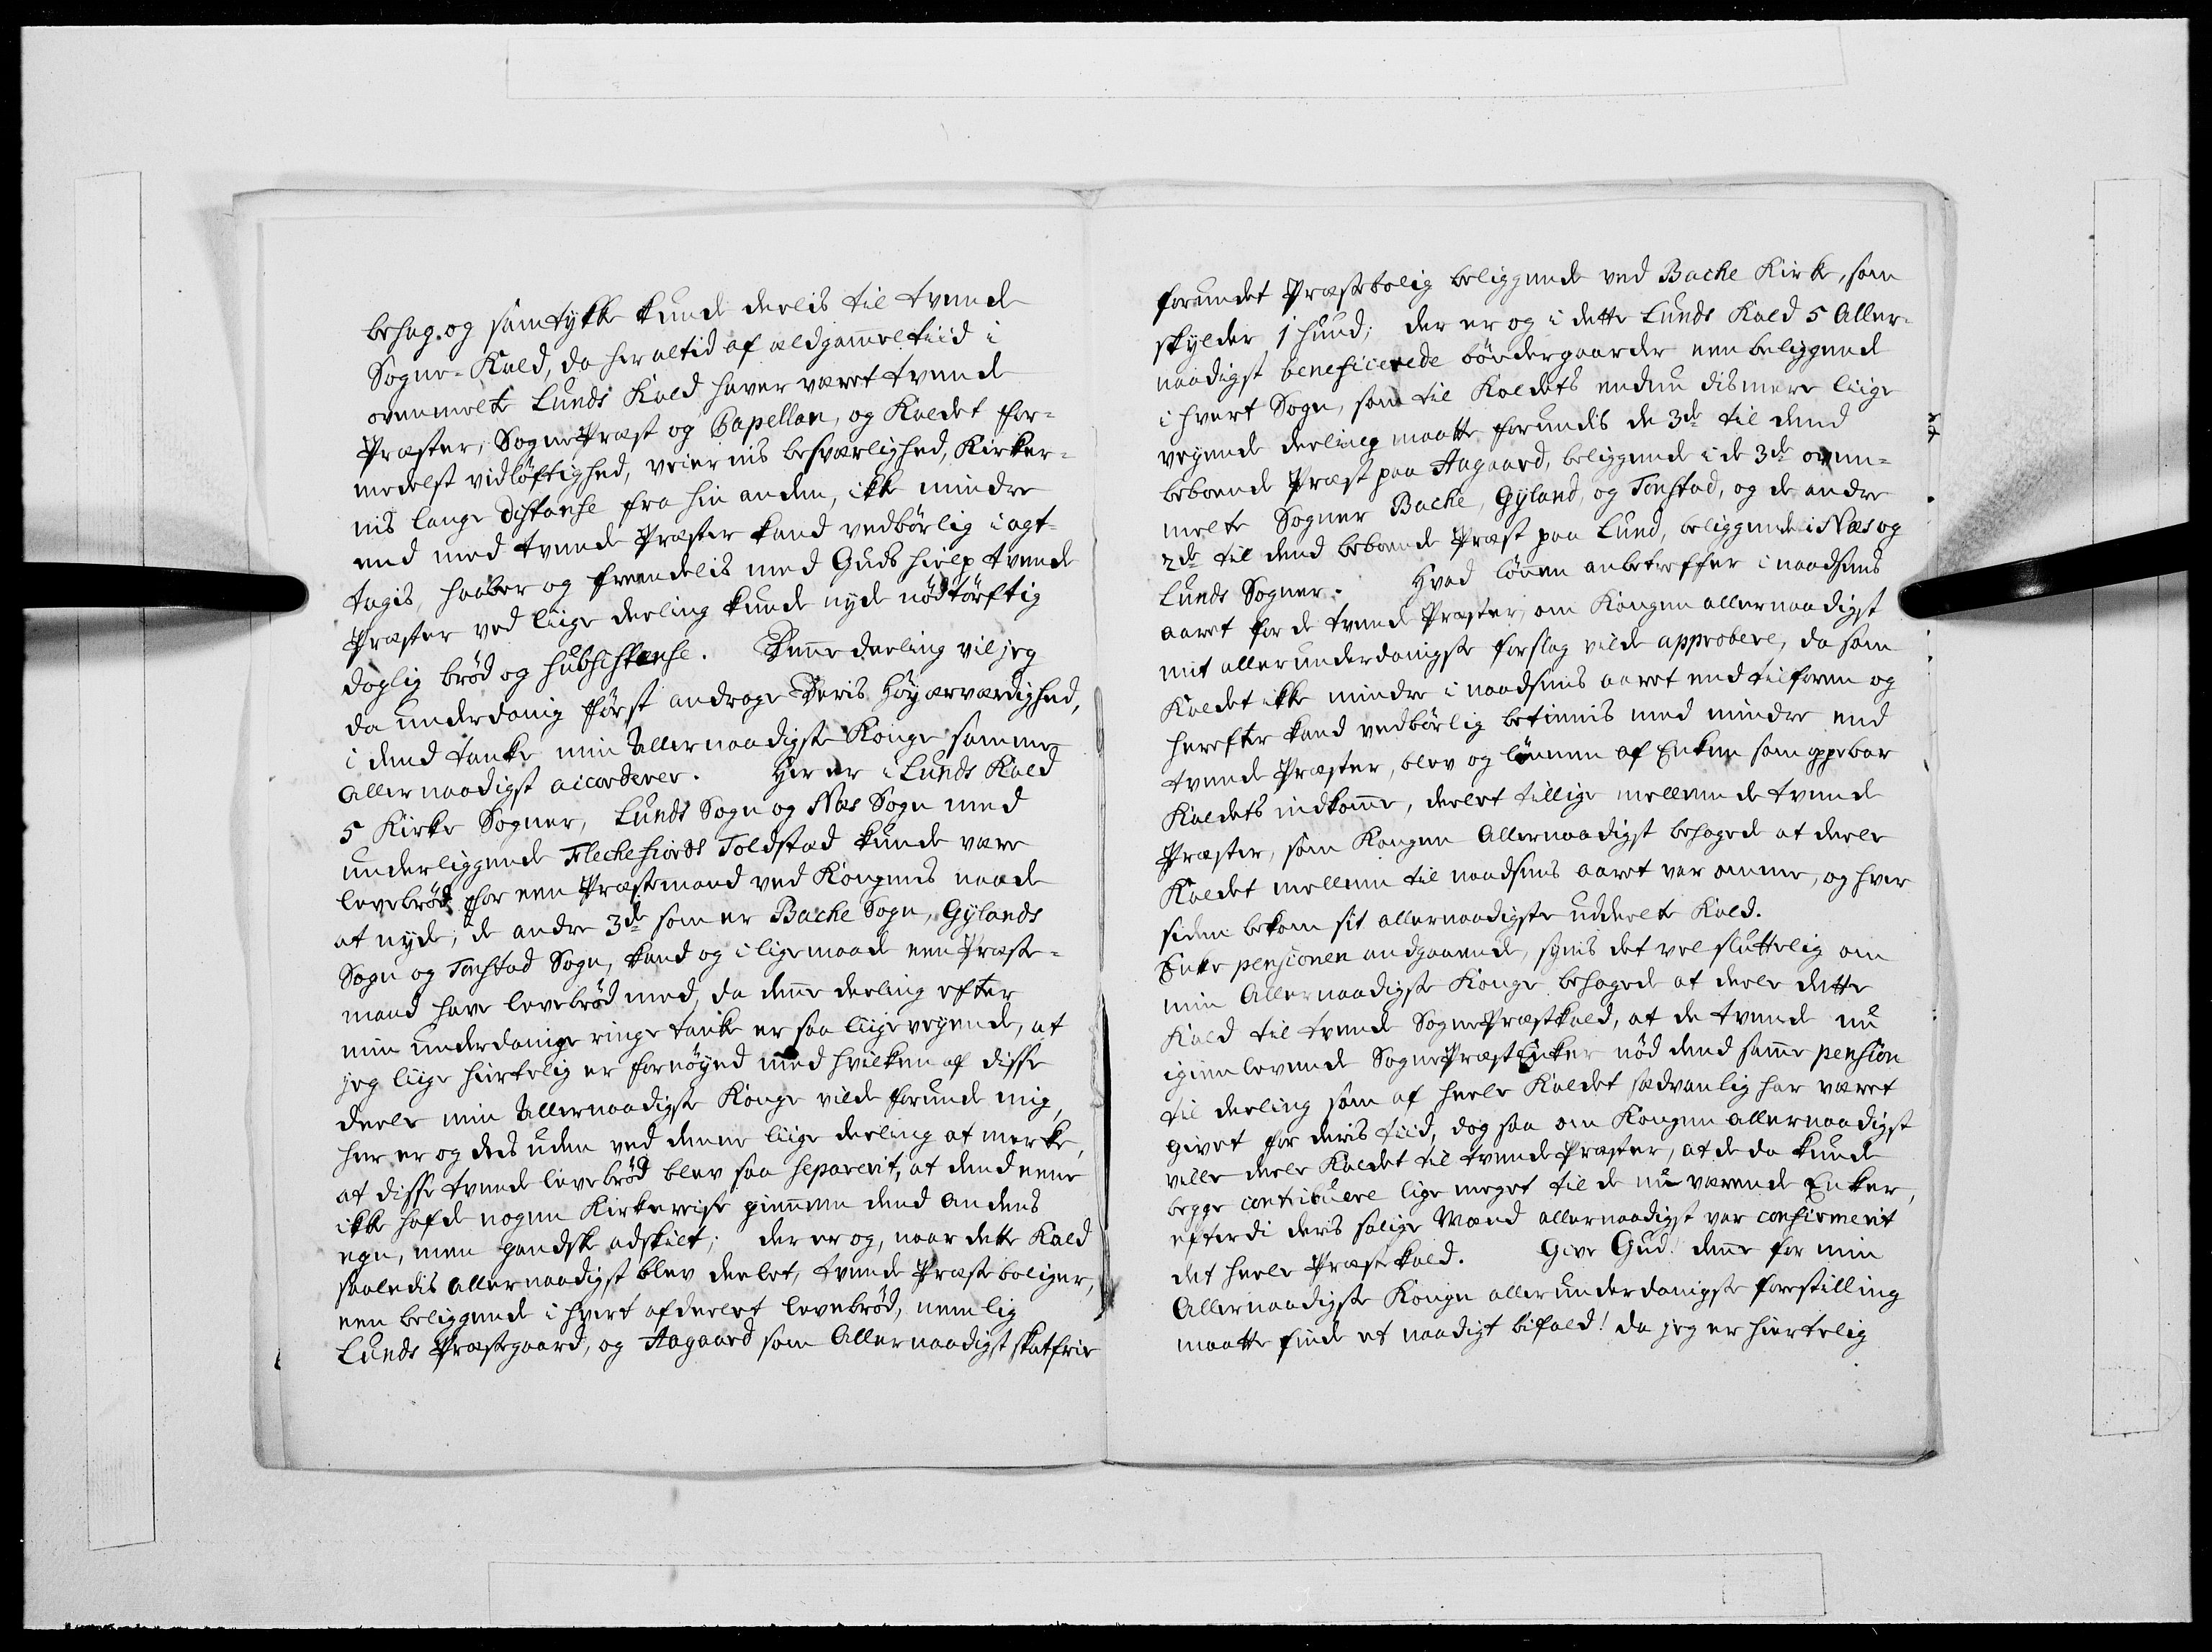 behag. og samtykke kunde deelis til tvende
Sogne-Kald, da her altid af ældgammel tiid i
ovenmelte Lunds Kald haver været tvende
Præster, SognePræst og Capellan, og Kaldet for-
medelst vidløftighed, veiernis besværlighed, Kirker-
nis lange distanse fra hin anden, ikke mindre
end med tvende Præster kand vedbørlig i agt-
tagis, haaber og fremdelis med Guds hielp tvende
Præster ved liige deeling kunde nyde nødtørftig
daglig brød og subsistense. Denne deeling vil jeg
da underdanig først andrage Deris Høyærværdighed,
i dend tanke min Allernaadigste Konge samme
Allernaadigst accorderer. Her er i Lunds Kald
5 Kirke Sogner, Lunds Sogn og Næs Sogn med
underliggende Flechefiords Toldstad kunde være
levebrød for een Præstemand ved Kongens naade
at nyde; de andre 3de som er Bache Sogn, Gylands
Sogn og Tonstad Sogn, kand og i ligemaade een Præste-
mand have levebrød med, da denne deeling efter
min underdanige ringe tanke er saa liigevegende, at
jeg liige hiertelig er fornøyed med hvilken af disse
deele min Allernaadigste Konge vilde forunde mig,
her er og des uden ved denne liige deeling at merke,
at disse tvende levebrød blev saa separerit, at dend eene
ikke hafde nogen Kirkereise giennem dend andens
egn, men gandske adskilt; der er og, naar dette Kald
saaledis allernaadigst blev deelet, tvende Præsteboliger,
een beliggende i hvert afdeelet levebrød, nemlig
Lunds Præstegaard, og Aagaard som Allernaadigst skatfrie
forundet Præstebolig beliggende ved Bache Kirke, som
skylder 1 hund; der er og i dette Lunds Kald 5 Aller-
naadigst beneficerede bøndergaarder een beliggende
i hvert Sogn, som til Kaldets endnu dismere liige
vegende deeling maatte forundis de 3de til dend
beboende Præst paa Aagaard, beliggende i de 3de oven-
melte Sogner Bache, Gyland, og Tonstad, og de andre
2de til dend beboende Præst paa Lund, beliggende i Næs og
Lunds Sogner. Hvad lønnen anbetreffer i naadsens
aaret for de tvende Præster, om Kongen allernaadigst
mit allerunderdanigste forslag vilde approbere, da som
Kaldet ikke mindre i naadsens aaret end tilforen og
herefter kand vedbørlig betienis med mindre end
tvende Præster, blev og lønnen af Enken som oppebar
Kaldets indkomme, deelet tillige mellem de tvende
Præster, som Kongen Allernaadigst behagede at deele
Kaldet mellem til naadsens aaret var omme, og hver
siden bekom sit allernaadigste uddeelte Kald.
Enke pensionen andgaaende, synis det vel sluttelig om
min Allernaadigste Konge behagede at deele dette
Kald til tvende SognePræstkald, at de tvende nu
igien levende SognePræstEnker nød dend samme pension
til deeling som af heele Kaldet sædvanlig har været
givet for deris tiid, dog saa om Kongen allernaadigst
ville deele Kaldet til tvende Præster, at de da kunde
begge contribuere lige meget til de nu værende Enker,
efterdi deris salige Mænd allernaadigst var confirmerit
det heele Præstekald. Give Gud! denne for min
Allernaadigste Konge allerunderdanigste forestilling
maatte finde et naadigt bifald! da jeg er hiertelig